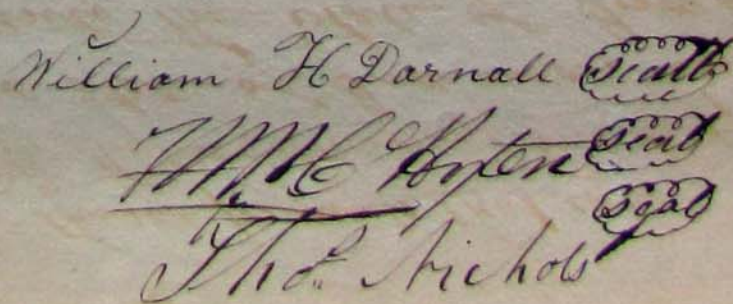 William H Darnall Seall
Wm C Hyten Seal
Seal
Thos. Nichols